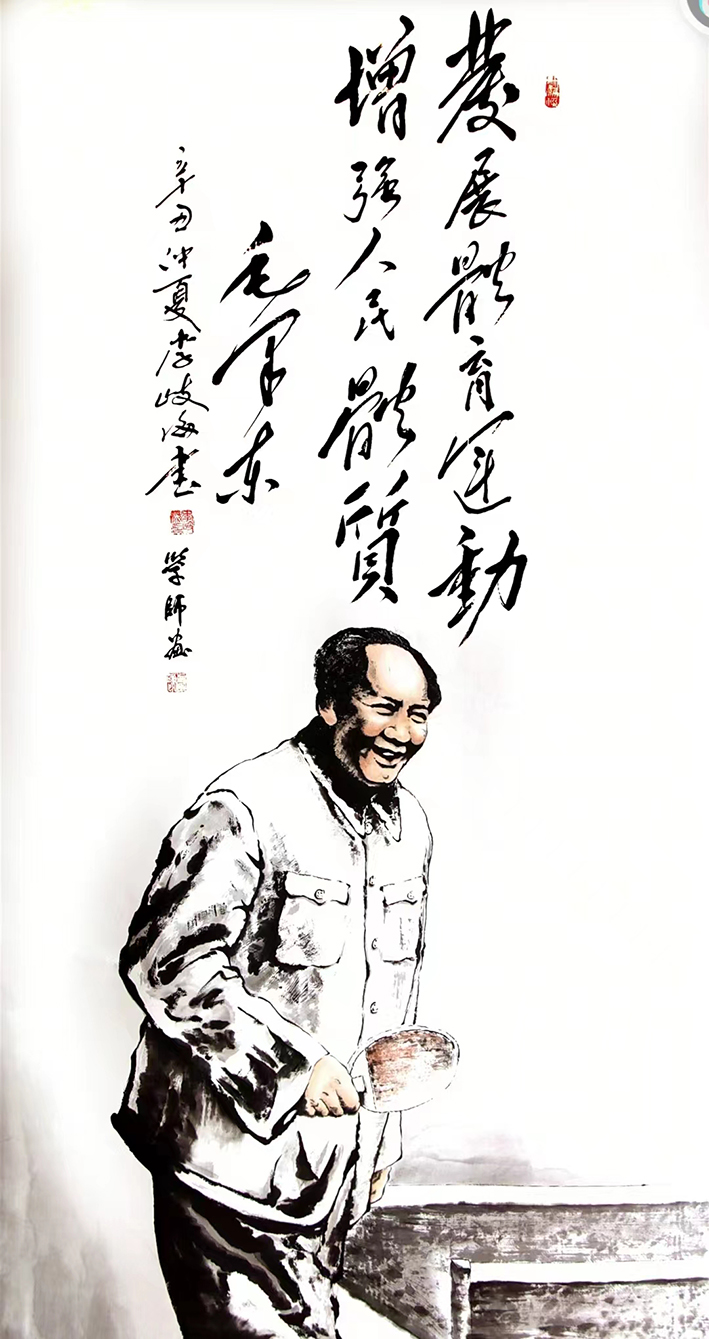 發展體育運動
增強人民體質
毛澤东
辛丑仲夏李岐海書
學師畫